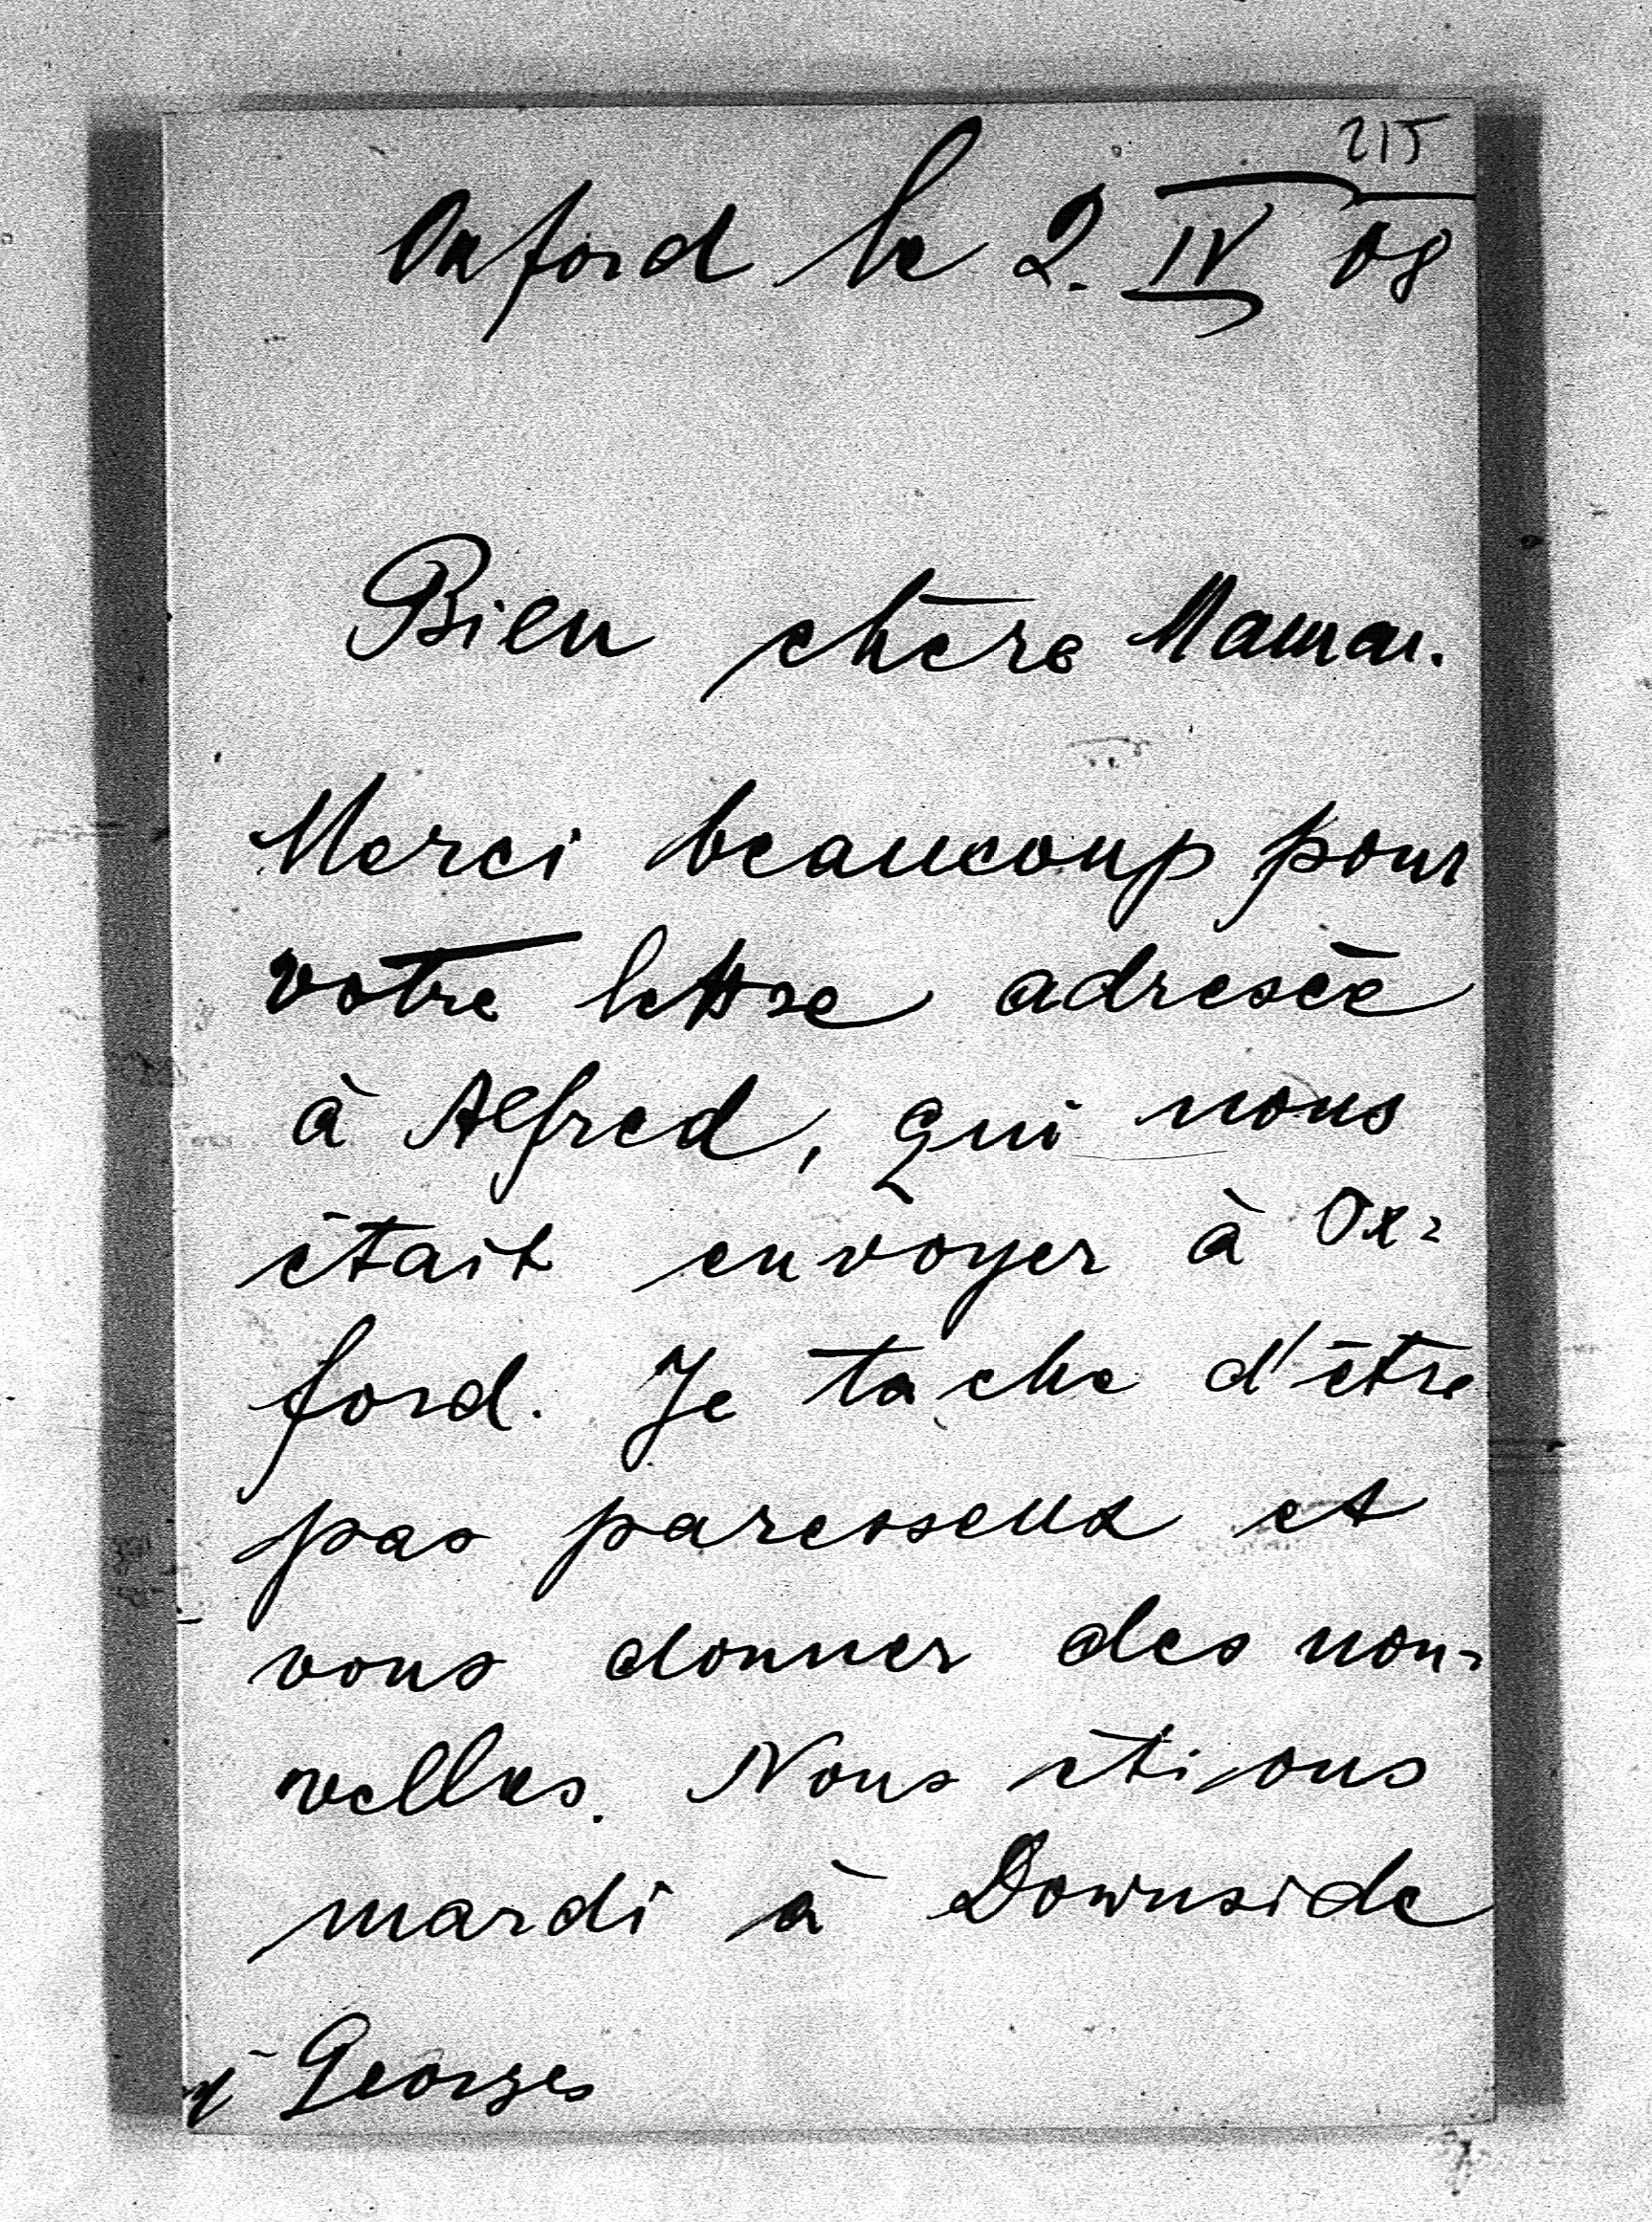 215
Oxford le 2. IV 08
Bien chère Maman.
Merci beaucoup pour
votre lettre adresée
à Alfred, qui nous
était envoyer à Ox=
ford. Je tache d'être
pas paresseux et
vous donner des nou=
velles. Nous étions
mardi à Downside
Georges